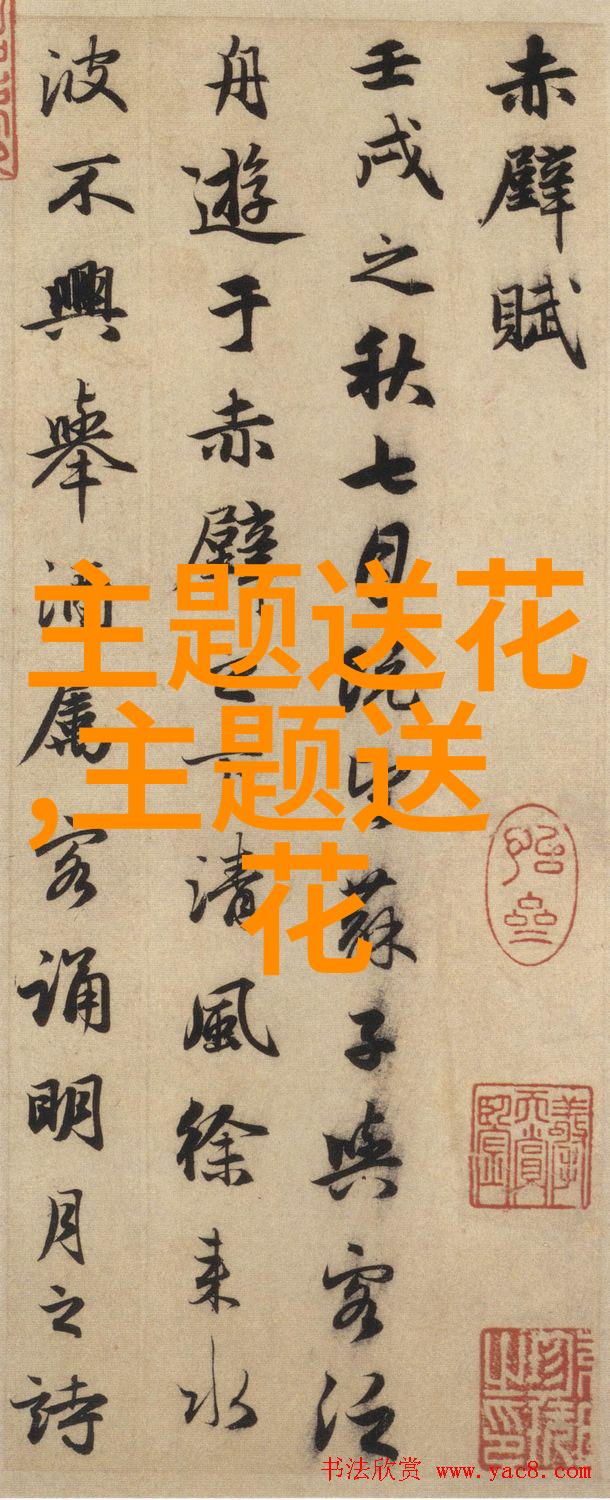 赤壁賦
壬戌之秋七月既望蘇子與客泛
舟遊于赤壁之下清風徐来水
波不興舉酒屬客誦明月之詩
主题送花
,主题送
花
书法欣赏 www.yac8.com